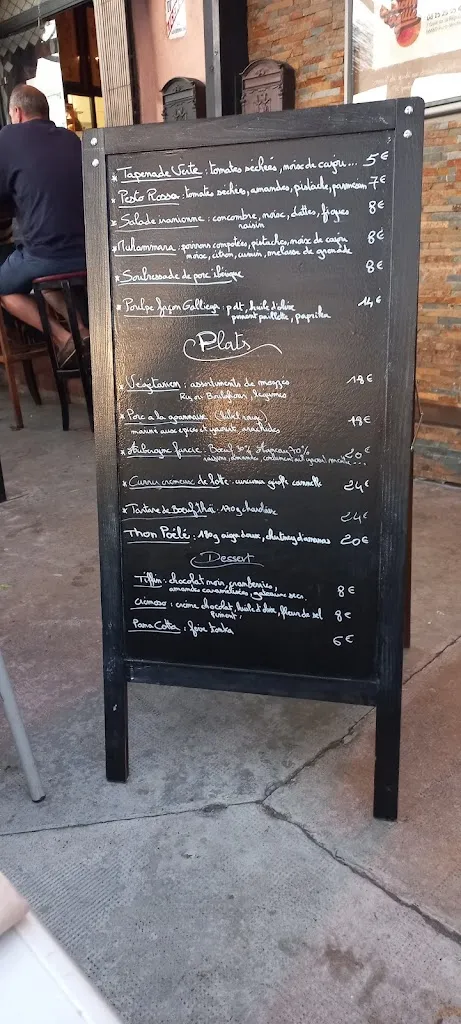 * Tapenade Verte : tomates séchées, noix de cajou ... 5€
* Pesto Rossa : tomates séchées, amandes, pistache, parmesan 7€
* Salade iranienne : concombre, noix, dattes, figues 8€
raisin
* Muhammara : poivrons compotées, pistaches, noix de cajou 8€
noix, citron, cumin, melasse de grenade
* Soubressade de porc ibérique 8€
* Poulpe façon Gallicia : pdt, huile d'olive 14€
piment paillette, paprika
Plats
* Végétarien : assortiments de mezzes 18€
Riz ou Boulghour, légumes
* Porc a la 18€
mariné aux épices et yaourt, arachides
* Aubergine farcie : Boeuf 30% Agneau 70% 20€
raisins, amandes,
* Curry cremeux de lotte : curcuma girofle cannelle 24€
* Tartare de Boeuf thaï : 170g charolais 24€
Thon Poêlé : 180g aigre doux, chutney d'ananas 20€
Dessert
Tiffin : chocolat noir, cranberries, 8€
amandes caramélisées, gateaux secs.
cremoso : crème chocolat, huile d'olive, fleur de sel 8€
piment,
Pana Cotta : fève tonka 6€